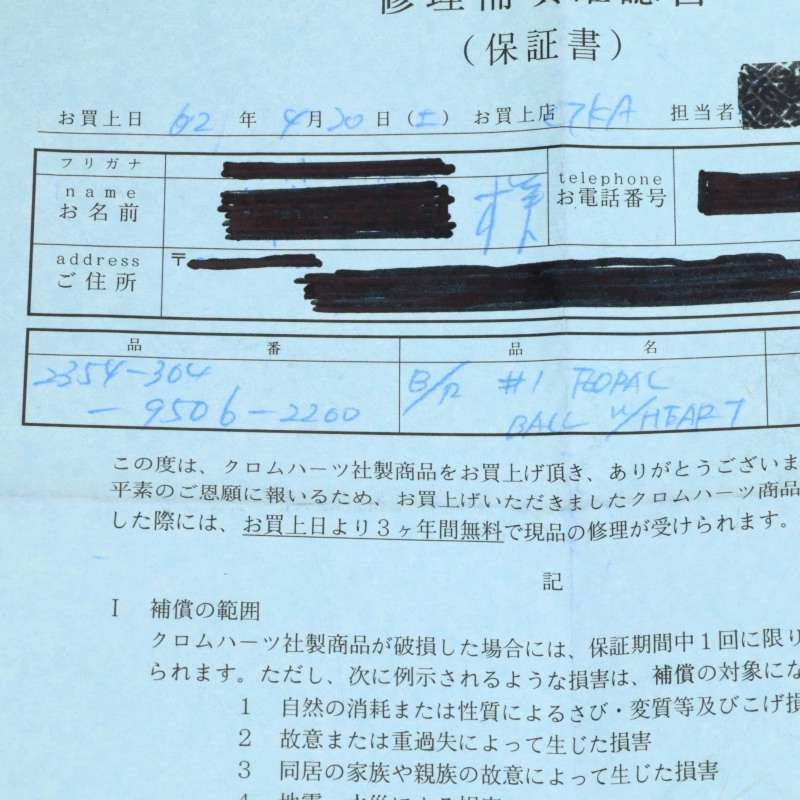 修理補償確認書
(保証書)
お買上日 02 年 4月20日(土) お買上店 担当者
フリガナ
name
お名前
様
telephone
お電話番号
address
ご住所
〒
品 番 品 名
2354-304 B/R #1 FLORAL
-9506-2200 BALL W/HEART
この度は、クロムハーツ社製商品をお買上げ頂き、ありがとうございま
平素のご恩願に報いるため、お買上げいただきましたクロムハーツ商品
した際には、お買上日より3ヶ年間無料で現品の修理が受けられます。
記
I 補償の範囲
クロムハーツ社製商品が破損した場合には、保証期間中1回に限り
られます。ただし、次に例示されるような損害は、補償の対象にな
1 自然の消耗または性質によるさび・変質等及びこげ損
2 故意または重過失によって生じた損害
3 同居の家族や親族の故意によって生じた損害